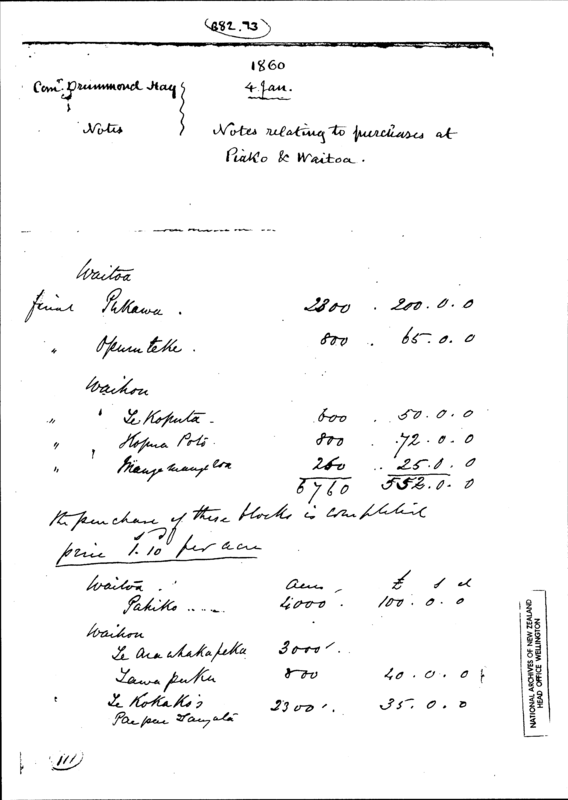 B82.73
1860
Comr Drummond Hay
4 Jan.
Notes
Notes relating to purchases at
Piako & Waitoa.
Waitoa
final Pukawa . 2300 . 200.0.0
" Opuruteke . 800 . 65.0.0
Waihou
" " Te Koputa - 600 . 50.0.0
" Hopua Poto 800 . 72.0.0
" 260 .. 25.0.0
6760 552.0.0
The purchase of these blocks is completed
price 1.10 per acre
Waitoa Acres £ s d
Pahiko .... 4000 . 100.0.0
Waihou
Te Ara whakapeka 3000 .
Tawa puku 800 40.0.0
Te Kokako's 2300 . 35.0.0
111
NATIONAL ARCHIVES OF NEW ZEALAND
HEAD OFFICE WELLINGTON